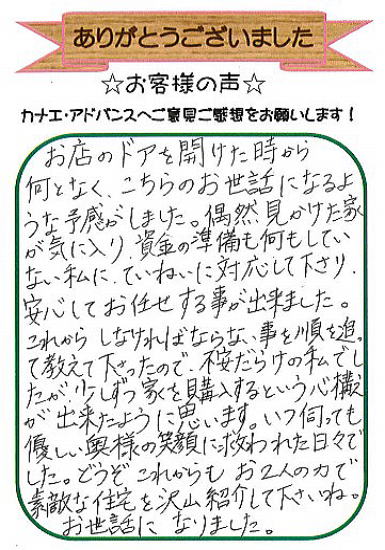 ありがとうございました
☆お客様の声☆
カナエ・アドバンスへご意見ご感想をお願いします！
お店のドアを開けた時から
何となく、こちらのお世話になるよ
うな予感がしました。偶然見かけた家
が気に入り、資金の準備も何もしてい
ない私に、ていねいに対応して下さり、
安心してお任せする事が出来ました。
これから しなければならない事を順を追っ
て教えて下さったので、不安だらけの私でし
たが、少しずつ家を購入するという心構え
が出来たように思います。いつ伺っても
優しい奥様の笑顔に救われた日々で
した。どうぞ これからも お2人の力で
素敵な住宅を沢山紹介して下さいね。
お世話に なりました。